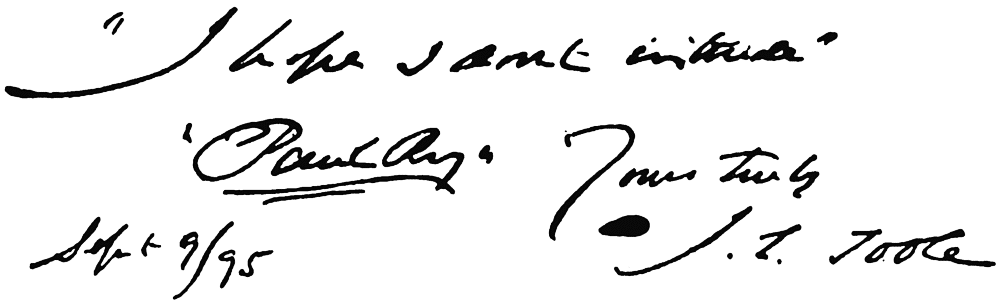 "I hope I dont intrude"
"Paul Pry" Yours truly
Sept 9/95 J. L. Toole